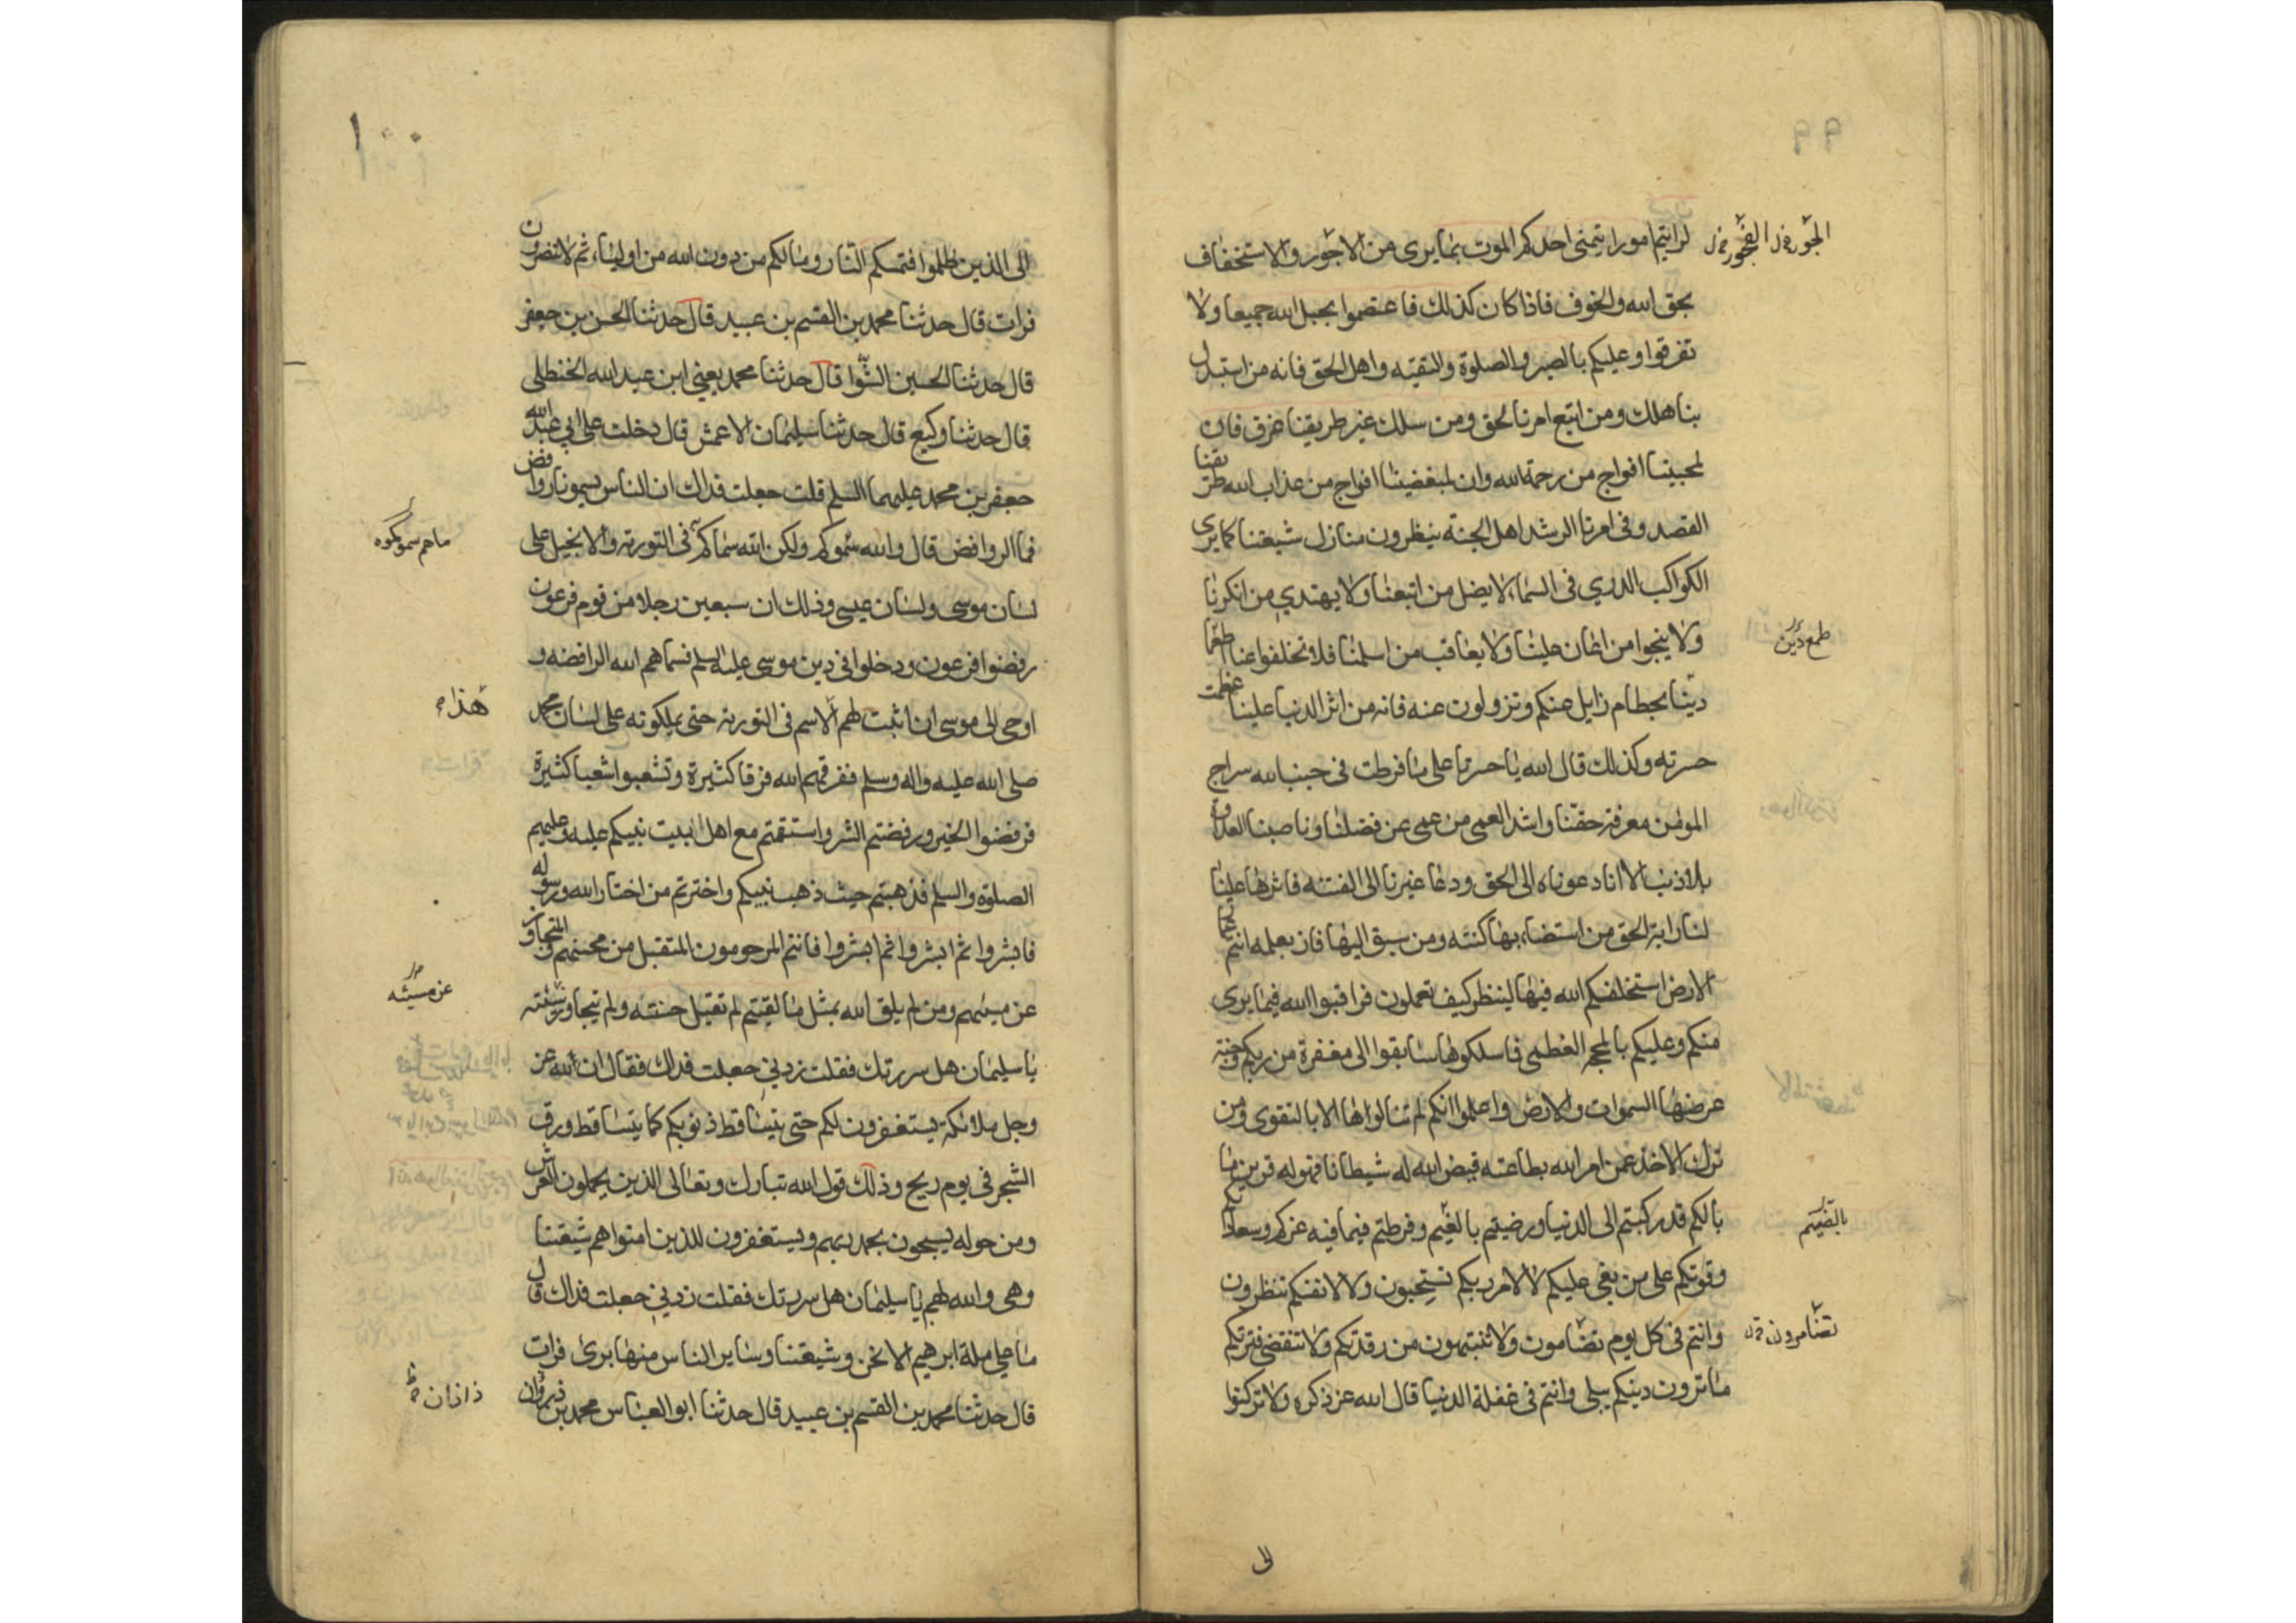 ٩٩
لرايتم امورا يتمنى احدكم الموت بما يرى من الاجور والاستخفاف
الجور في ل الفجور في ل
بحق الله والخوف فاذا كان كذلك فاعتصموا بحبل الله جميعا ولا
تفرقوا وعليكم بالصبر والصلوة والتقيه واهل الحق فانه من استبدل
بنا هلك ومن اتبع امرنا لحق ومن سلك غير طريقنا غرق فان
لمحبينا افواج من رحمة الله وان لمبغضينا افواج من عذاب الله طريقنا
القصد وفى امرنا الرشد اهل الجنة ينظرون منازل شيعتنا كما يرى
الكواكب الدري فى السماء لا يضل من اتبعنا ولا يهتدي من انكرنا
ولا ينجوا من اعان علينا ولا يعاقب من اسلمنا فلا تخلفوا عنا طمعا
طمع دين
ديننا بحطام زايل عنكم وتزولون عنه فانه من اثر الدنيا علينا عظمت
حسرته وكذلك قال الله يا حسرتا على ما فرطت فى جنب الله سراج
المؤمن معرفة حقنا واشد العمى من عمى عن فضلنا وناصبنا العداوة
بلا ذنب الا انا دعوناه الى الحق ودعا غيرنا الى الفتنه فاثرها علينا
لنا راية الحق من استضاء بها كنته ومن سبق اليها فاز بعلمه انتم عمار
الارض استخلفكم الله فيها لينظر كيف تعملون فراقبوا الله فيما يرى
منكم وعليكم بالمحجه العظمى فاسلكوها سابقوا الى مغفرة من ربكم وجنة
عرضها السموات والارض واعلموا انكم لم تنالوها الا بالتقوى ومن
ترك الاخذ عمن امر الله بطاعته قيض الله له شيطانا فهو له قرين ما
بالكم قد ركبتم الى الدنيا ورضيتم بالغيم وفرطتم فيما فيه عزكم وسعادتكم
بالضيم
وقوتكم على من بغى عليكم لا لامر ربكم تستحيون ولا لانفسكم تنظرون
وانتم فى كل يوم تضامون ولا تنتبهون من رقدتكم ولا تنقضى فترتكم
تضامرون
ما ترون دينكم يبلى وانتم فى غفلة الدنيا قال الله عز ذكره ولا تركنوا
الى
١٠٠
الى الذين ظلموا فتمسكم النار وما لكم من دون الله من اولياء ثم لا تنصرون
فرات قال حدثنا محمد بن القسم بن عبيد قال حدثنا الحسن بن جعفر
قال حدثنا الحسين الشوا قال حدثنا محمد يعني ابن عبد الله الحنظلى
قال حدثنا وكيع قال حدثنا سليمان الاعمش قال دخلت على ابي عبد الله
جعفر بن محمد عليهما السلم قلت جعلت فداك ان الناس يسمونا روافض
فما الروافض قال والله سموكم ولكن الله سماكم فى التورية والانجيل على
ما هم سموكموه
لسان موسى ولسان عيسى وذلك ان سبعين رجلا من قوم فرعون
رفضوا فرعون ودخلوا فى دين موسى عليه السلم فسماهم الله الرافضه و
اوحى الى موسى ان اثبت لهم الاسم فى التورية حتى يملكونه على لسان محمد
هذا
صلى الله عليه واله وسلم ففرقهم الله فرقا كثيرة وتشعبوا شعبا كثيرة
فرفضوا الخير ورفضتم الشر واستقمتم مع اهل بيت نبيكم عليه وعليهم
الصلوة والسلم فذهبتم حيث ذهب نبيكم واخترتم من اختار الله ورسوله
فابشروا ثم ابشروا ثم ابشروا فانتم المرحومون المتقبل من محسنهم والمتجاوز
عن مسيئهم ومن لم يلق الله بمثل ما لقيتم لم تقبل حسنته ولم يتجاوز سيئته
عن مسيئه
يا سليمان هل سررتك فقلت زدني جعلت فداك فقال ان الله عز
وجل ملائكة يستغفرون لكم حتى يتساقط ذنوبكم كما يتساقط ورق
الشجر فى يوم ريح وذلك قول الله تبارك وتعالى الذين يحملون العرش
ومن حوله يسبحون بحمد ربهم ويستغفرون للذين امنوا هم شيعتنا
وهى والله لهم يا سليمان هل سررتك فقلت زدني جعلت فداك قال
ما على ملة ابرهيم الا نحن وشيعتنا وساير الناس منها برئ فرات
قال حدثنا محمد بن القسم بن عبيد قال حدثنا ابو العباس محمد بن ذيروان
ذازان